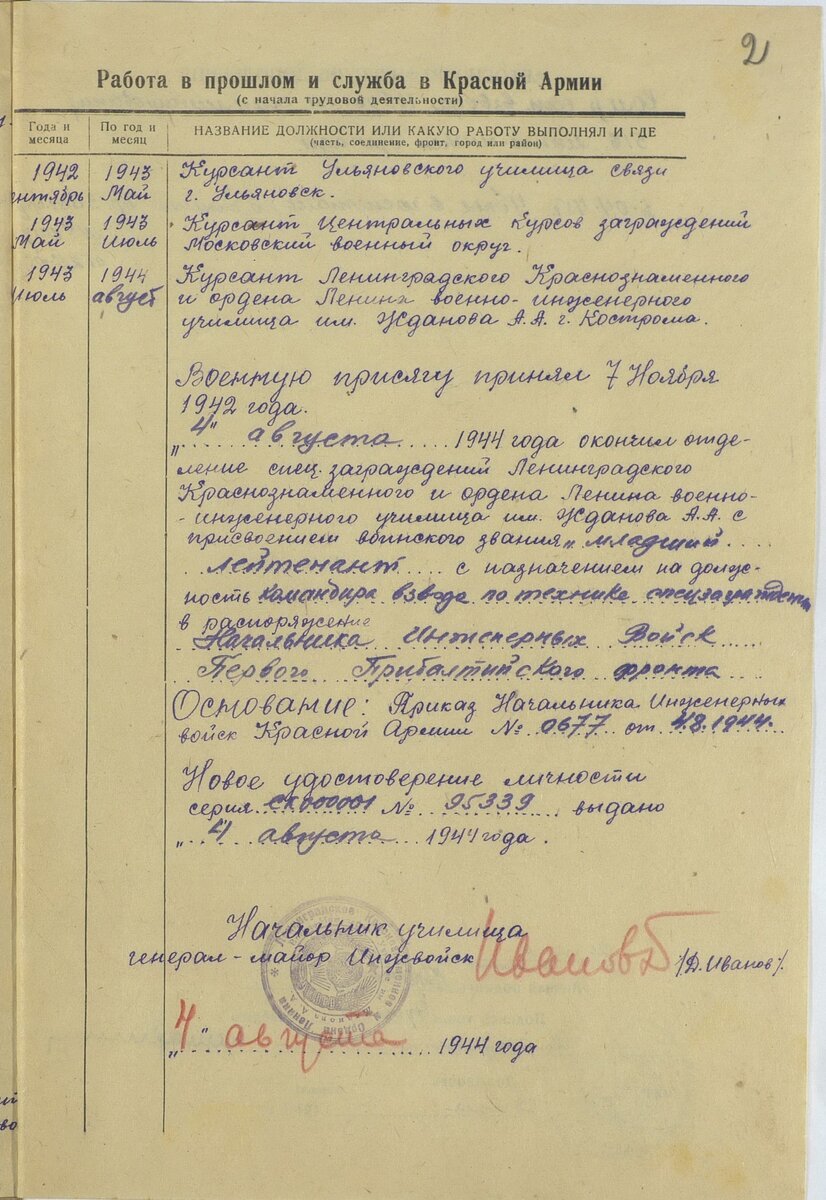 2
Работа в прошлом и служба в Красной Армии
(с начала трудовой деятельности)
Года и месяца По год и месяц НАЗВАНИЕ ДОЛЖНОСТИ ИЛИ КАКУЮ РАБОТУ ВЫПОЛНЯЛ И ГДЕ
(часть, соединение, фронт, город или район)
1942 1943 Курсант Ульяновского училища связи
ентябрь Май г. Ульяновск.
1943 1943 Курсант Центральных Курсов заграждений
Май Июль Московский военный округ.
1943 1944 Курсант Ленинградского Краснознаменного
Июль август и ордена Ленина военно-инженерного
училища им. Жданова А.А. г. Кострома.
Военную присягу принял 7 Ноября
1942 года.
"4" августа 1944 года окончил отде-
ление спец. заграждений Ленинградского
Краснознаменного и ордена Ленина военно-
-инженерного училища им. Жданова А.А. с
присвоением воинского звания "младший
лейтенант с назначением на долж-
ность командира взвода по технике спецзаграждения
в распоряжение
Начальника Инженерных Войск
Первого Прибалтийского фронта
Основание: Приказ Начальника Инженерных
войск Красной Армии № 0677 от 4.8.1944.
Новое удостоверение личности
серия СК000001 № 95339 выдано
"4" августа 1944 года.
Начальник училища
генерал-майор Инжвойск Иванов /Д. Иванов/.
"4" августа 1944 года